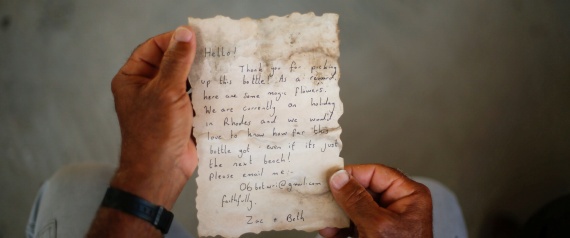 Hello!
Thank you for picking
up this bottle! As a reward
here are some magic flowers.
We are currently on holiday
in Rhodes and we would
love to know how far this
bottle got even if its just
the next beach!
Please email me :-
@gmail.com
faithfully,
Zoe + Beth